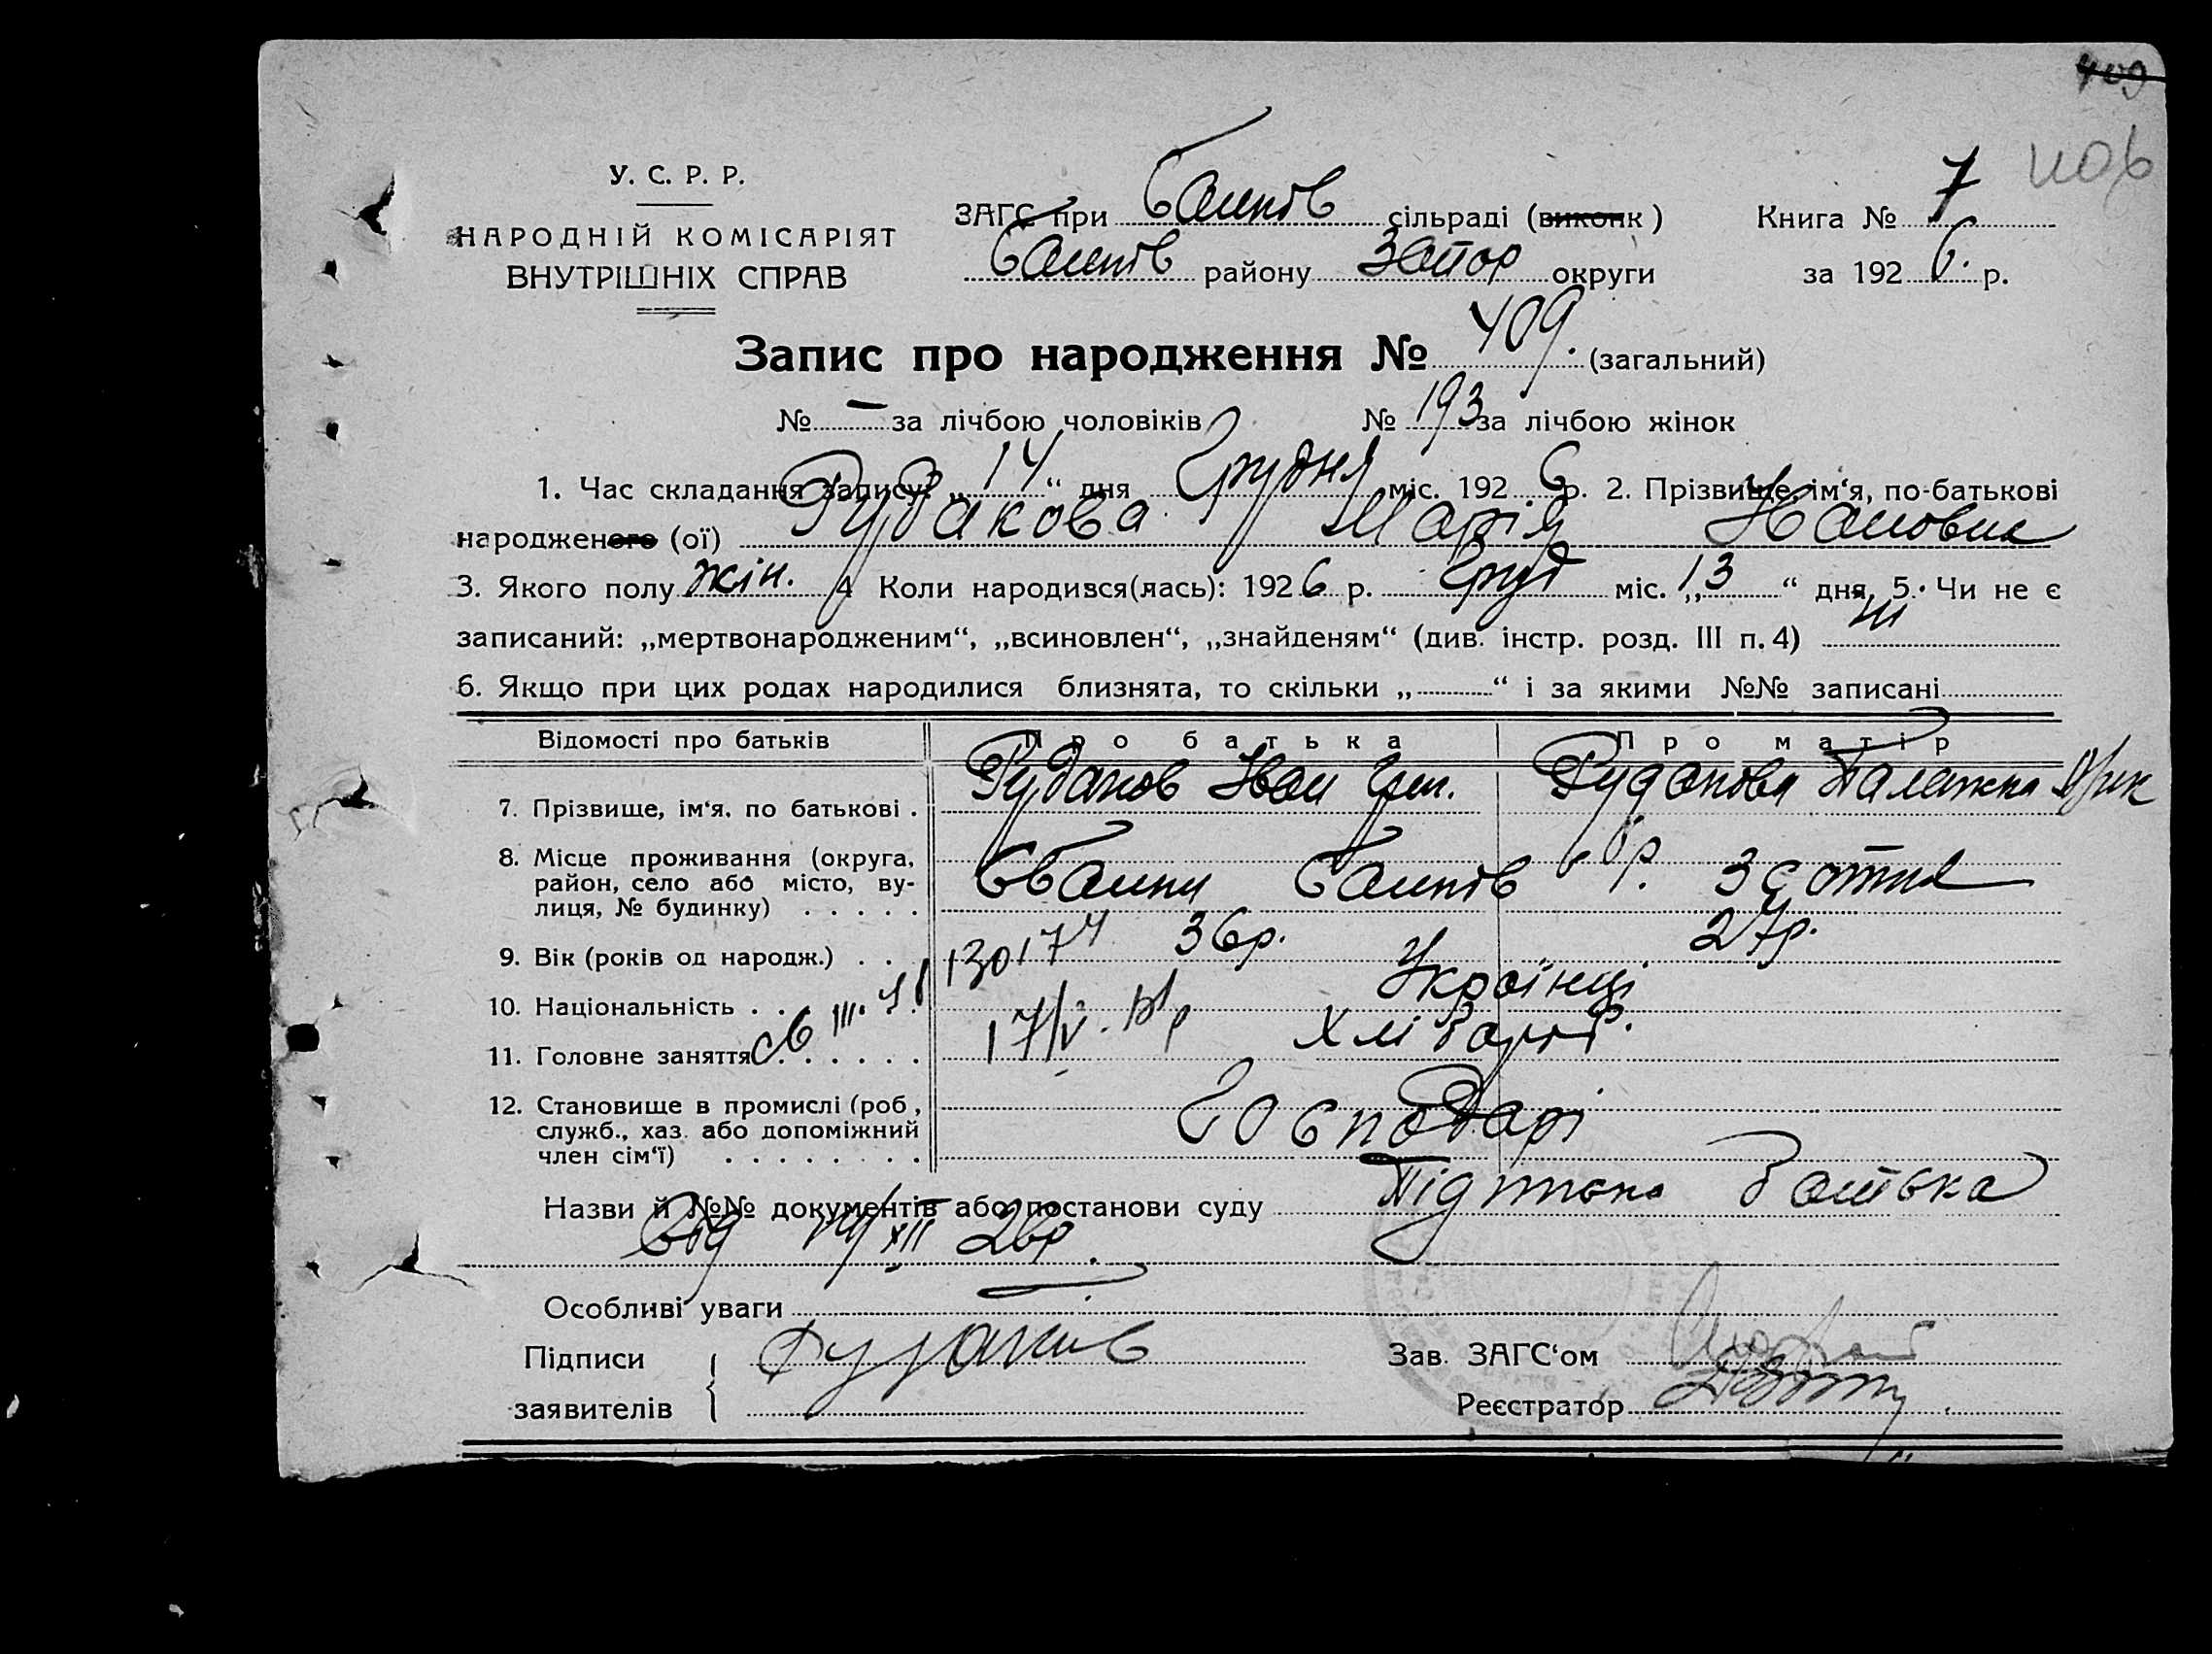 409
У. С. Р. Р.
НАРОДНІЙ КОМІСАРІЯТ
ВНУТРІШНІХ СПРАВ
ЗАГС при сільраді (виконк)
району Запор округи
Книга № 7
за 1926 р.
Запис про народження № 409. (загальний)
№ — за лічбою чоловіків № 193 за лічбою жінок
1. Час складання запису: „ 14 “ дня Грудня міс. 1926 р. 2. Прізвище, ім‘я, по-батькові
народженого (ої) Рудакова Марія Ивановна
3. Якого полу жін. 4 Коли народився(лась): 1926 р. Груд міс. „ 13 “ дня. 5. Чи не є
записаний: „мертвонародженим“, „всиновлен“, „знайденям“ (див. інстр. розд. III п. 4) ні
6. Якщо при цих родах народилися близнята, то скільки „ “ і за якими №№ записані
Відомості про батьків Про батька Про матір
7. Прізвище, ім‘я, по батькові . Рудаков Иван Гри. Рудакова Палажка
8. Місце проживання (округа,
район, село або місто, ву-
лиця, № будинку) . . . . . 3 сотня
9. Вік (років од народж.) . . . 36р. 27р.
10. Національність . . . . . Українці
11. Головне заняття . . . . . . Хлібароб.
12. Становище в промислі (роб.,
служб., хаз. або допоміжний
член сім‘ї) . . . . . . . . Господарі
Назви й №№ документів або постанови суду Підписка батька
від 14/XII 26р.
Особливі уваги
Підписи
заявителів
Зав. ЗАГС‘ом
Реєстратор